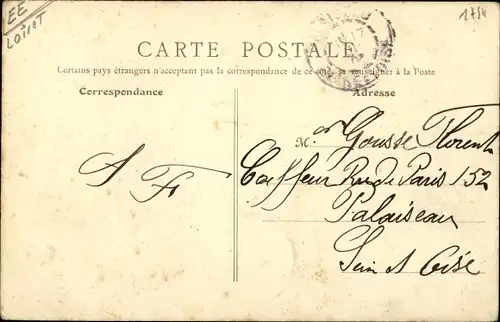 EE
LOIRET
1754
CARTE POSTALE
Certains pays étrangers n'acceptant pas la correspondance de ce côté, se renseigner à la Poste
Correspondance
Adresse
A F
M.r Gousse Florent
Coiffeur Rue de Paris 152
Palaiseau
Seine et Oise